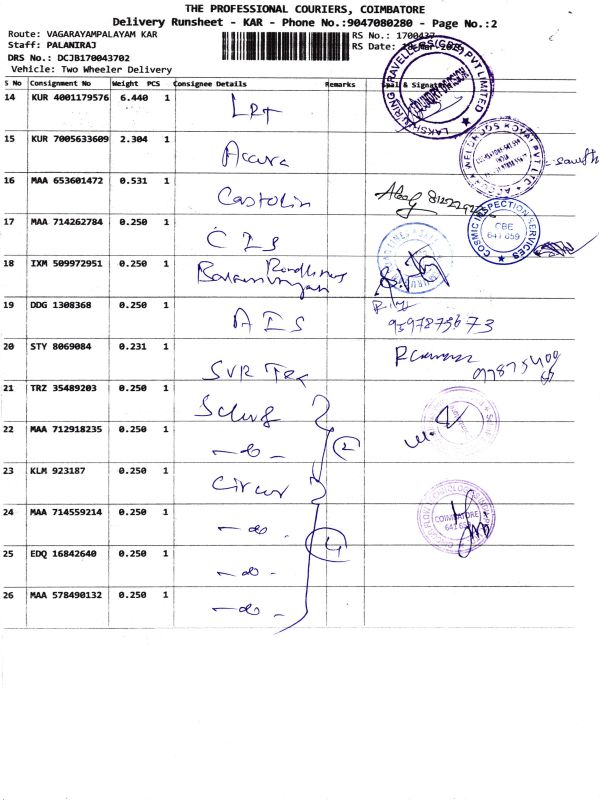 THE PROFESSIONAL COURIERS, COIMBATORE
Delivery Runsheet - KAR - Phone No.:9047080280 - Page No.:2
Route: VAGARAYAMPALAYAM KAR
RS No.: 1700437
Staff: PALANIRAJ
RS Date:
DRS No.: DCJB170043702
Vehicle: Two Wheeler Delivery
S No Consignment No Weight PCS Consignee Details Remarks Seal & Signature
14 KUR 4001179576 6.440 1 LRT
15 KUR 7005633609 2.304 1 Accura
16 MAA 653601472 0.531 1 Castolin
17 MAA 714262784 0.250 1 CIS
18 IXM 509972951 0.250 1
19 DDG 1308368 0.250 1 AIS
20 STY 8069084 0.231 1 SVR Tex
21 TRZ 35489203 0.250 1
22 MAA 712918235 0.250 1 -do-
2
23 KLM 923187 0.250 1 Circor
24 MAA 714559214 0.250 1 -do-
4
25 EDQ 16842640 0.250 1 -do-
26 MAA 578490132 0.250 1 -do-
COSMIC INSPECTION SERVICES
CBE
641 659
COIMBATORE